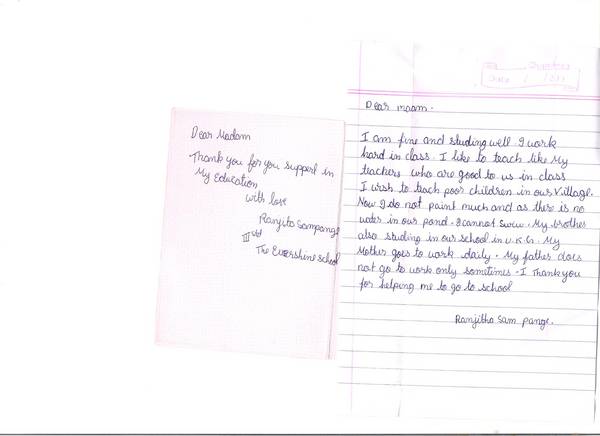 Dear Madam
Thank you for you support in
My Education
with love
Ranjita Sampange
III std
The Evershine School
Date / /201
Dear maam.
I am fine and studing well. I work
hard in class. I like to teach like My
teachers who are good to us in class
I wish to teach poor children in our Village.
Now I do not paint much and as there is no
water in our pond. I cannot Swim. My brother
also studing in our school in U.K.G. My
Mother goes to work daily. My father does
not go to work only sometimes. I Thank you
for helping me to go to school
Ranjitha Sam pange.